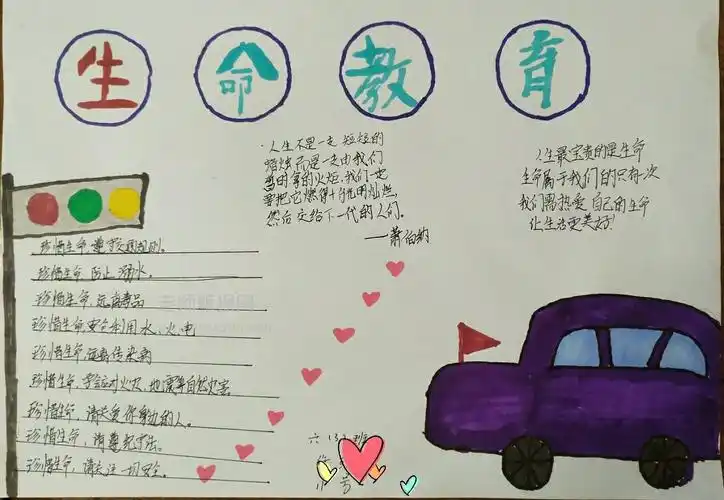 生命教育
人生不是一支短短的
蜡烛而是一支由我们
暂时拿的火炬.我们一定
要把它燃得十分光明灿烂,
然后交给下一代的人们。
——萧伯纳
人生最宝贵的是生命
生命属于我们的只有一次
我们需热爱自己的生命
让生活更美好!
珍惜生命,遵守交通规则。
珍惜生命,防止溺水。
珍惜生命,远离毒品
珍惜生命,安全利用水,火,电
珍惜生命,远离传染病
珍惜生命,学会应对火灾,地震等自然灾害
珍惜生命,请关爱你身边的人。
珍惜生命,请尊老
珍惜生命,请关注一切安全。
六 班
号